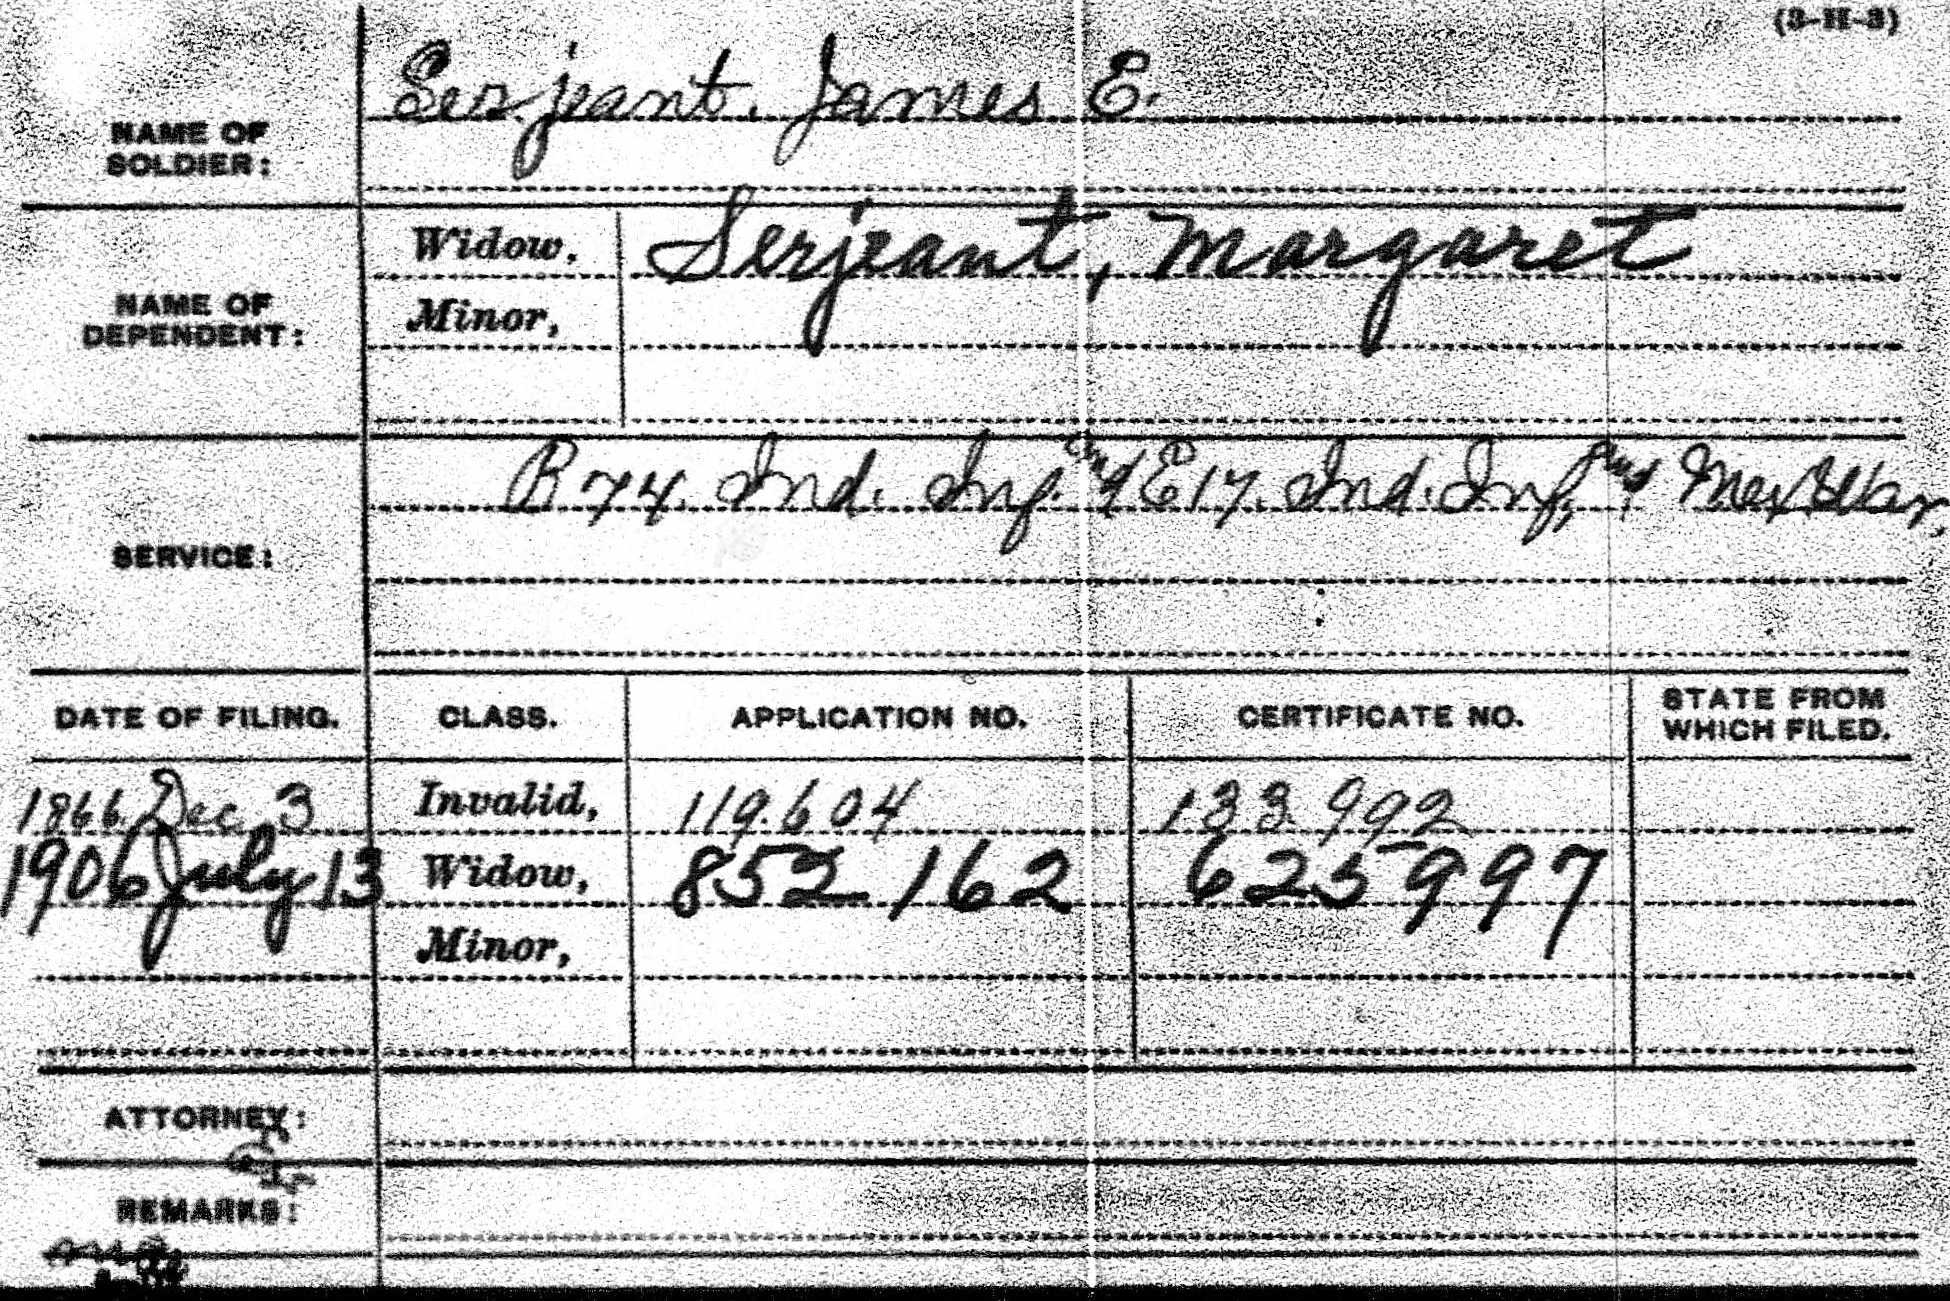 (3-H-3)
NAME OF SOLDIER: Serjeant. James E.
NAME OF DEPENDENT:
Widow, Serjeant, Margaret
Minor,
SERVICE: B 74. Ind. Inf. and E 17. Ind. Inf, and Mex War,
DATE OF FILING. CLASS. APPLICATION NO. CERTIFICATE NO. STATE FROM WHICH FILED.
1866. Dec 3 Invalid, 119.604 133.992
1906 July 13 Widow, 852 162 625 997
Minor,
ATTORNEY:
REMARKS: